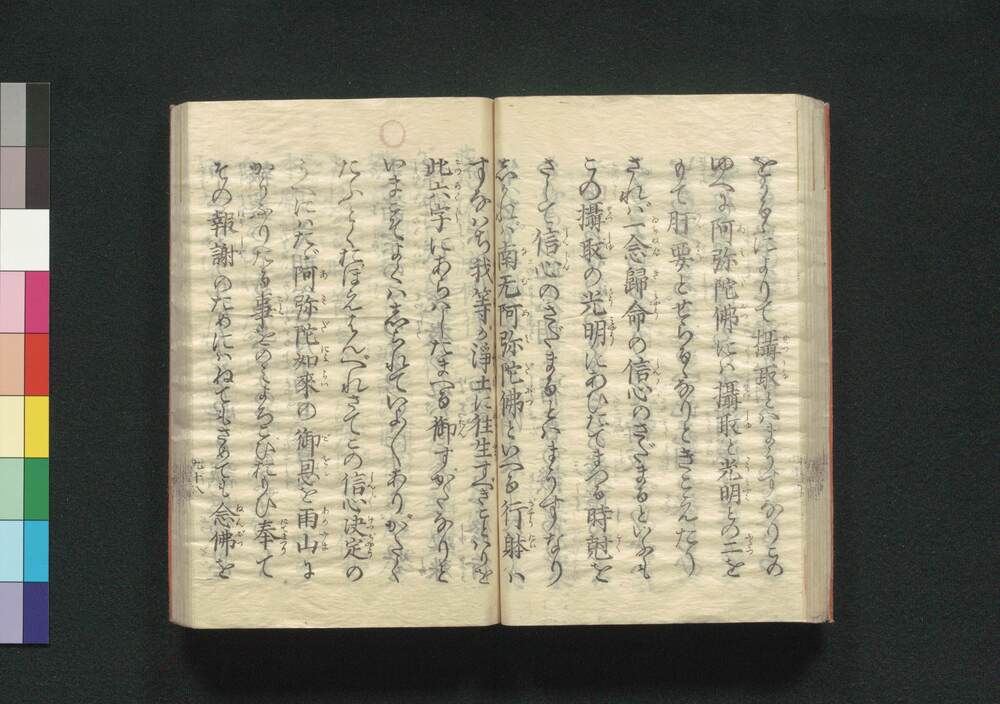 をうるによりて攝取とはまうすなりこの
ゆへに阿弥陀佛には攝取と光明との二を
もて肝要とせらるゝなりときこえたり
されば一念歸命の信心のさだまるといふも
この攝取の光明にあひたてまつる時尅を
さして信心のさだまるとはまうすなり
しかれば南无阿弥陀佛といへる行躰は
すなはち我等が淨土に往生すべきことはりを
此六字にあらはしたまへる御すがたなりと
いまこそよくはしられていよ〳〵ありがたく
たふとくおぼえはんべれさてこの信心决定の
うへにはたゞ阿弥陀如來の御恩を雨山に
かうふりたる事をのみよろこびおもひ奉て
その報謝のためにはねてもさめても念佛を
九十八